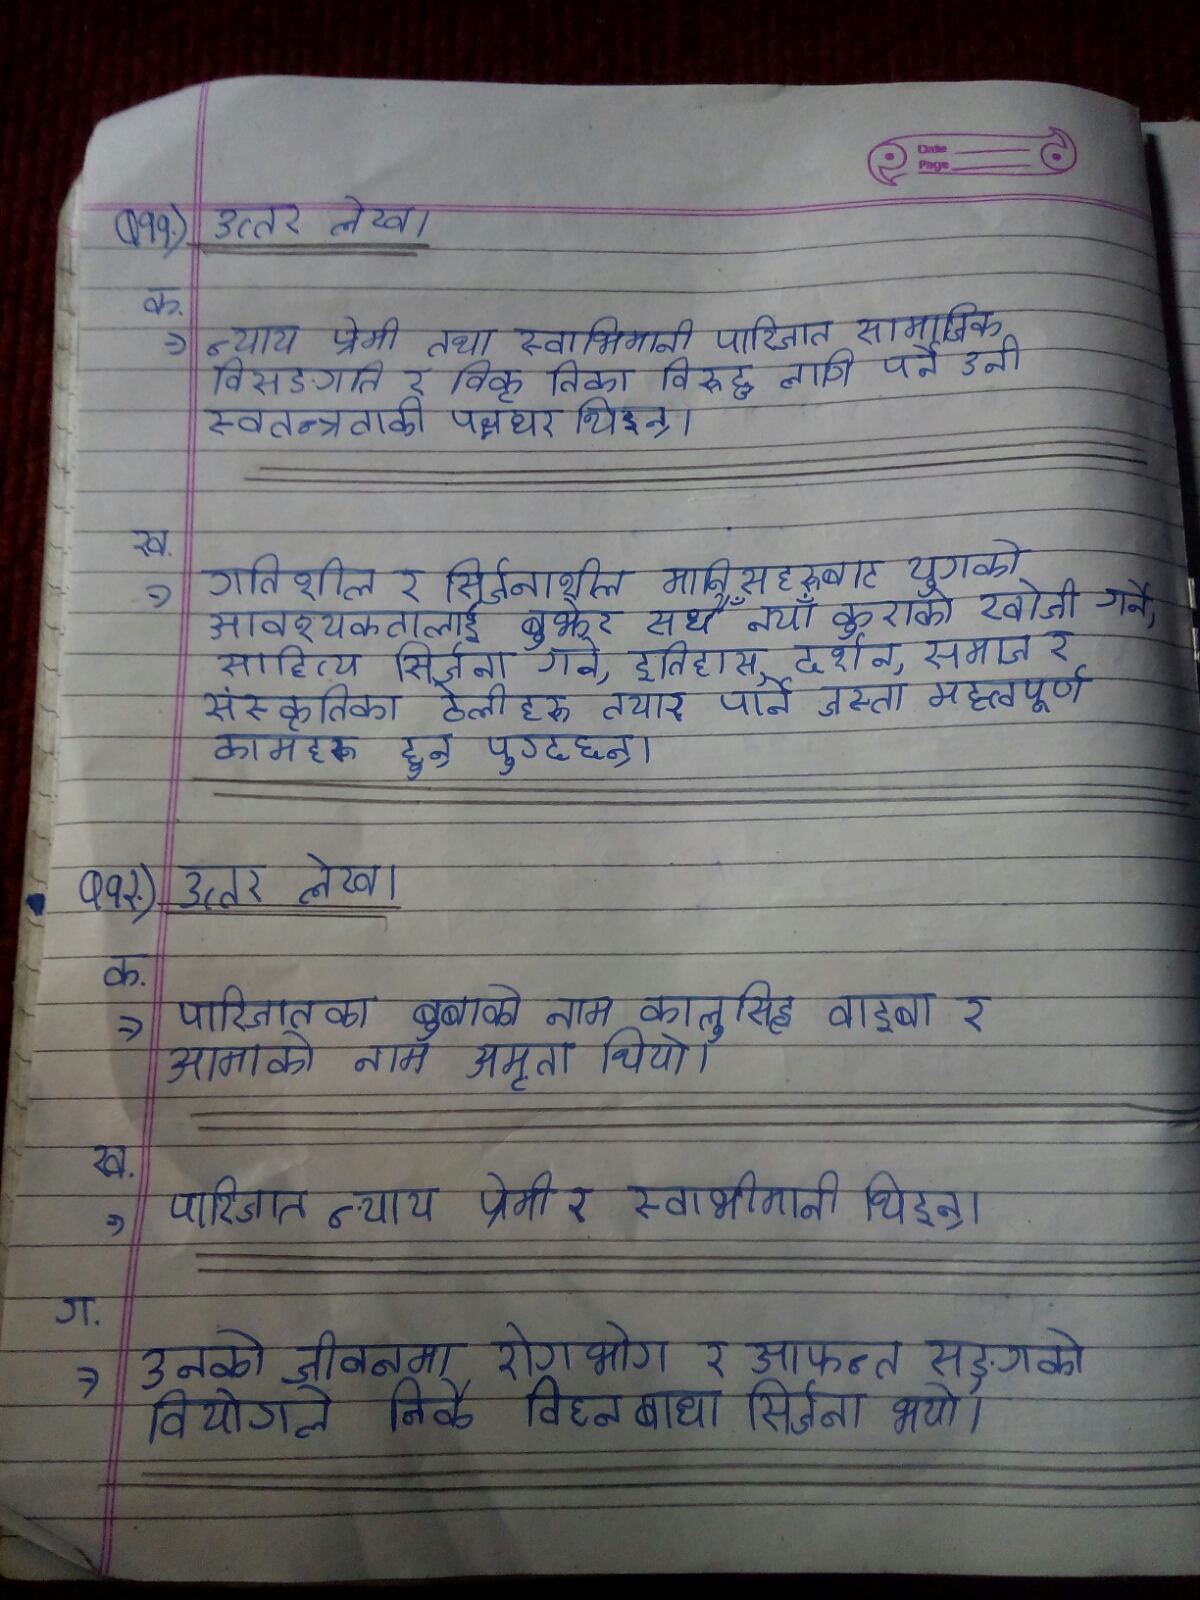 Date
Page
Q११.) उत्तर लेख।
क.
⇒ न्याय प्रेमी तथा स्वाभिमानी पारिजात सामाजिक
विसङगति र विकृतिका विरुद्ध लागि पर्ने उनी
स्वतन्त्रताकी पक्षधर थिइन्।
ख.
⇒ गतिशील र सिर्जनाशील मानिसहरूबाट युगको
आवश्यकतालाई बुझेर सधैँ नयाँ कुराको खोजी गर्ने,
साहित्य सिर्जना गर्ने, इतिहास, दर्शन, समाज र
संस्कृतिका ठेलीहरू तयार पार्ने जस्ता महत्वपूर्ण
कामहरू हुन पुग्दछन्।
Q१२.) उत्तर लेख।
क.
⇒ पारिजातका बुबाको नाम कालुसिह वाइबा र
आमाको नाम अमृता थियो।
ख.
⇒ पारिजात न्याय प्रेमी र स्वाभीमानी थिइन्।
ग.
⇒ उनको जीवनमा रोगभोग र आफन्त सङ्गको
वियोगले निकै विघ्नबाधा सिर्जना भयो।